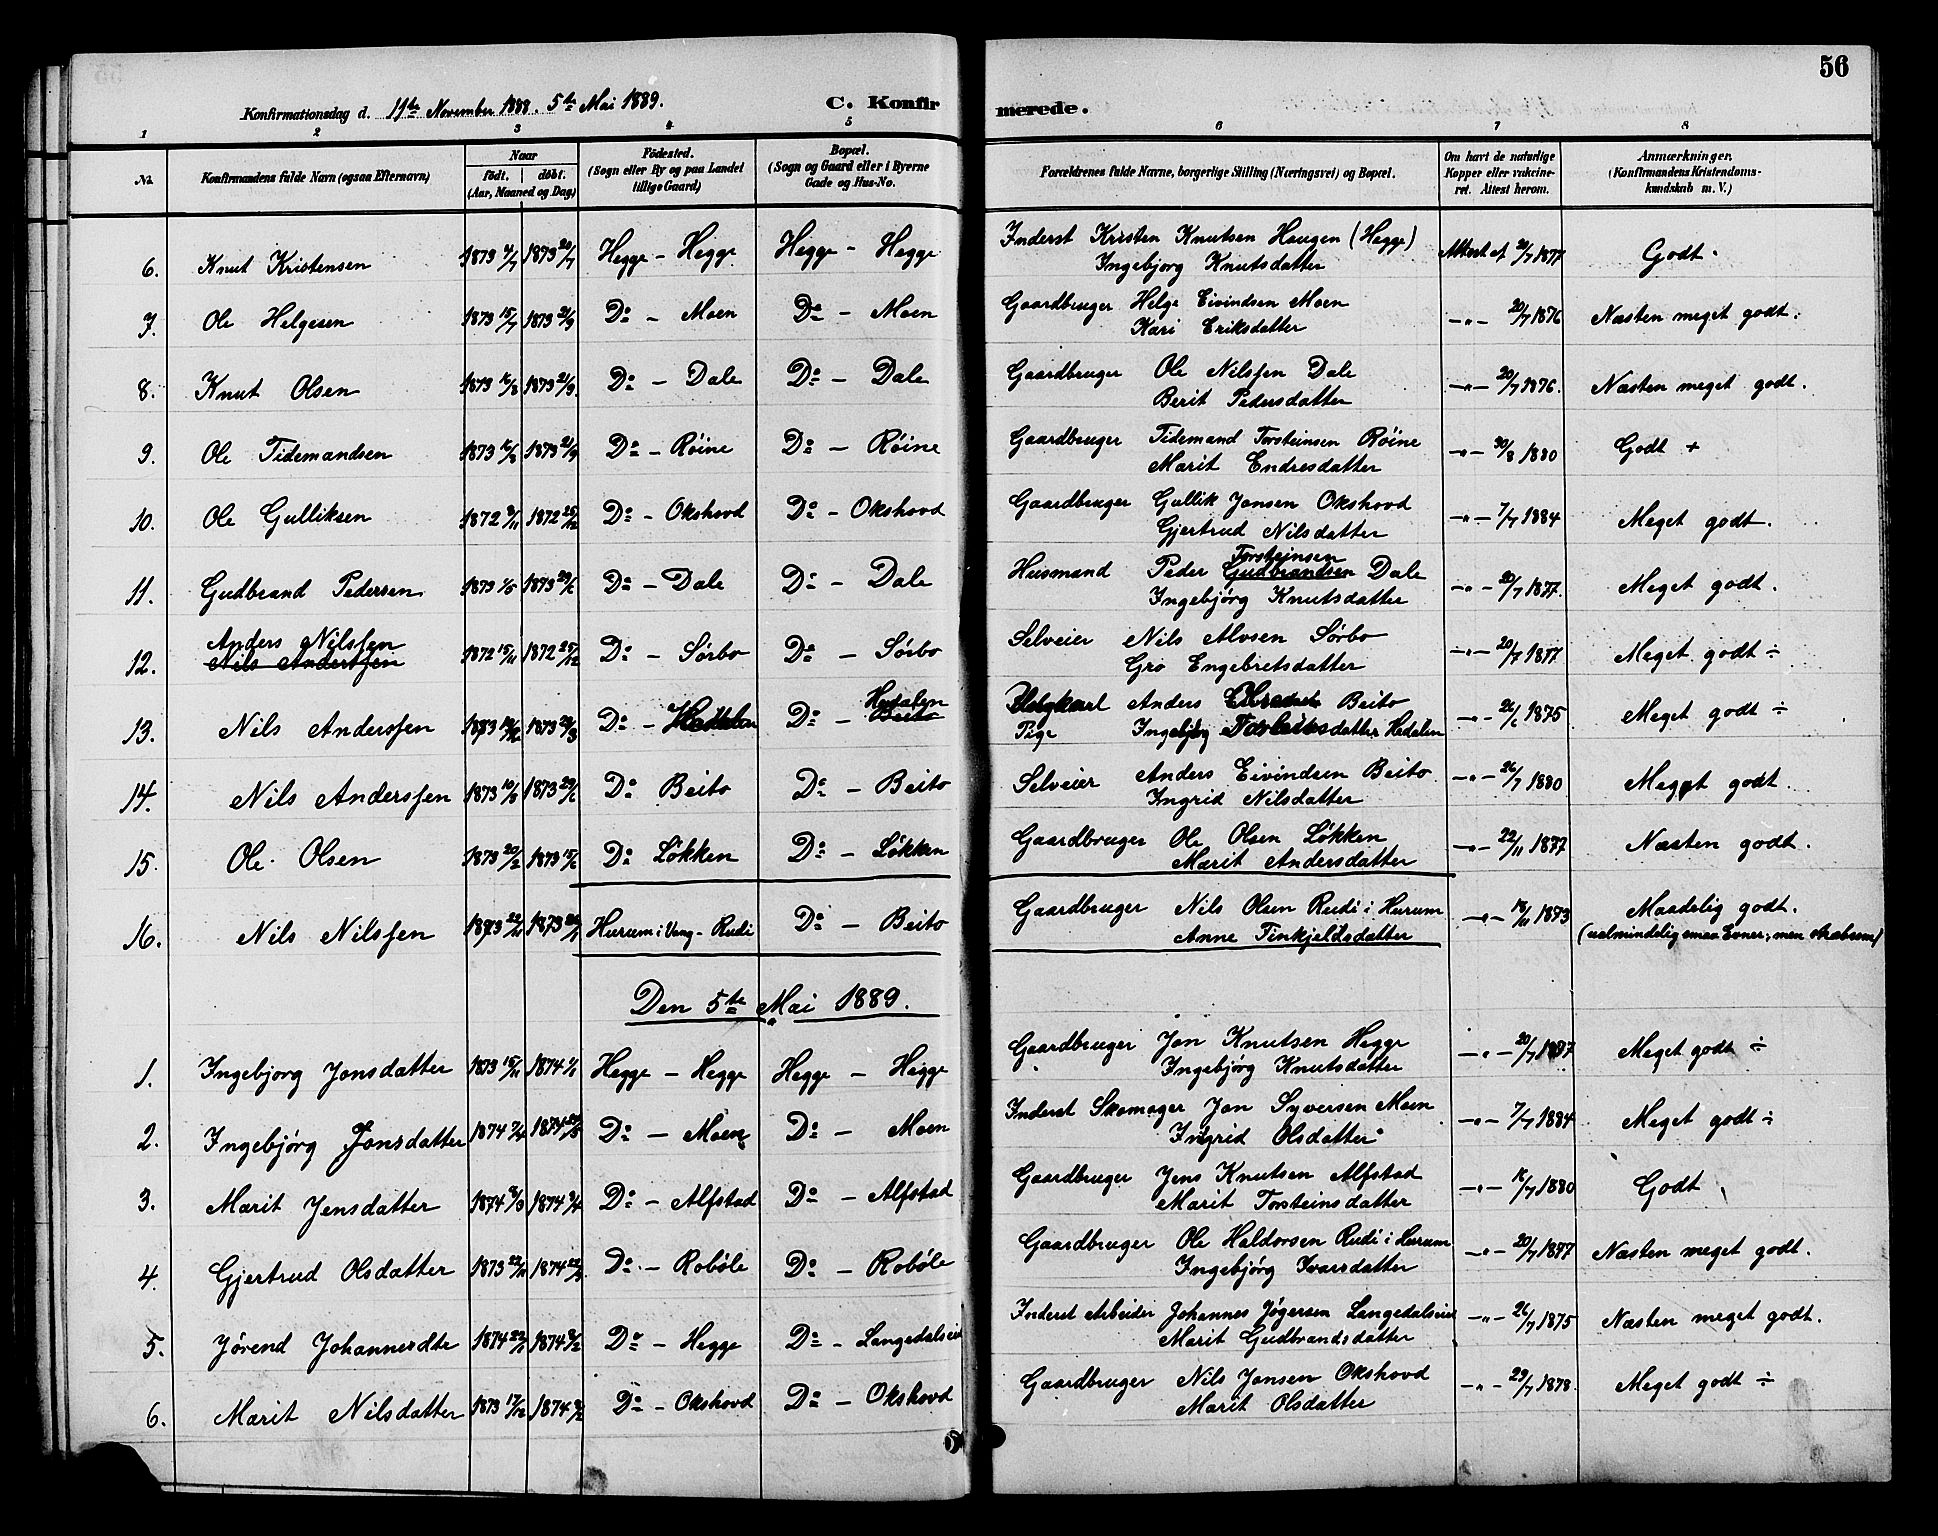 56
Konfirmationsdag d. 11te November 1888. 5te Mai 1889.
C. Konfirmerede.
1 2 3 4 5 6 7 8
No. Konfirmandens fulde Navn (ogsaa Efternavn)
Naar født. døbt. (Aar, Maaned og Dag)
Fødested. (Sogn eller By og paa Landet tillige Gaard)
Bopæl. (Sogn og Gaard eller i Byerne Gade og Hus-No.
Forældrenes fulde Navne, borgerlige Stilling (Næringsvei) og Bopæl.
Om havt de naturlige Kopper eller vaccineret. Attest herom.
Anmærkninger. (Konfirmandens Kristendomskundskab m. V.)
6. Knut Kristensen 1873 1873 20/7 Hegge - Hegge Hegge - Hegge Inderst Kristen Knutsen Haugen (Hegge) Attest af 20/7 1877 Godt.
Ingebjørg Knutsdatter
7. Ole Helgesen 1873 15/7 1873 21/9 Do - Moen Do - Moen Gaardbruger Helge Eivindsen Moen -"- 20/7 1876 Næsten meget godt.
Kari Eriksdatter
8. Knut Olsen 1873 1873 21/9 Do - Dale Do - Dale Gaardbruger Ole Nilssen Dale -"- 20/7 1876. Næsten meget godt.
Berit Pedersdatter
9. Ole Tidemandsen 1873 1873 21/9 Do - Røine Do - Røine Gaardbruger Tidemand Torsteinsen Røine -"- 30/8 1880 Godt +
Marit Endresdatter
10. Ole Gulliksen 1872 1872 25/12 Do - Okshovd Do - Okshovd Gaardbruger Gullik Jonsen Okshovd -"- 7/7 1884 Meget godt.
Gjertrud Nilsdatter
11. Gudbrand Pedersen 1873 1/5 1873 29/6 Do - Dale Do - Dale Husmand Peder Torsteinsen Gudbrandsen Dale -"- 20/7 1877. Meget godt.
Ingebjørg Knutsdatter
12. Anders Nilssen Nils Anderssen 1872 15/11 1872 25/12 Do - Sørbo Do - Sørbo Selveier Nils Alvsen Sørbo -"- 20/7 1877 Meget godt ÷
Gro Engebretsdatter
13. Nils Anderssen 1873 1873 Do - Hedalen Do - Hedalen Beito Ungkarl Anders Beito -"- 1875 Meget godt ÷
Pige Ingebjørg Hedalen
14. Nils Anderssen 1873 1873 29/6 Do Beito Do - Beito Selveier Anders Eivindsen Beito -"- 26/7 1880 Meget godt.
Ingrid Nilsdatter
15. Ole Olsen 1873 20/2 1873 15/6 Do Løkken Do - Løkken Gaardbruger Ole Olsen Løkken -"- 22/11 1877 Næsten godt.
Marit Andersdatter
16. Nils Nilssen 1873 1873 Hurum i Vang - Rudi Do - Beito Gaardbruger Nils Olsen Rudi i Hurum -"- 18/11 1873 Maadelig godt.
Anne Tinkjeldsdatter (ualmindelig smaa Evner, men stræbsom)
Den 5te Mai 1889.
1. Ingebjørg Jonsdatter 1873 15/11 1874 1/1 Hegge - Hegge Hegge - Hegge Gaardbruger Jon Knutsen Hegge -"- 20/7 Meget godt ÷
Ingebjørg Knutsdatter
2. Ingebjørg Jonsdatter 1874 7/4 1874 Do - Moen Do - Moen Inderst Skomager Jon Syversen Moen -"- 7/7 1884 Meget godt ÷
Ingrid Olsdatter
3. Marit Jensdatter 1874 1874 Do - Alfstad Do - Alfstad Gaardbruger Jens Knutsen Alfstad -"- 1880 Godt
Marit Torsteinsdatter
4. Gjertrud Olsdatter 1873 22/11 1874 22/3 Do - Robøle Do - Robøle Gaardbruger Ole Haldorsen Rudi i Hurum -"- 20/7 1877 Næsten meget godt.
Ingebjørg Ivarsdatter
5. Jørend Johannesdtr 1874 1874 Do - Hegge Do - Langedalseie Inderst Arbeider Johannes Jøgersen Langedalseie -"- 26/7 1875 Næsten meget godt.
Marit Gudbrandsdatter
6. Marit Nilsdatter 1873 17/12 1874 Do - Okshovd Do - Okshovd Gaardbruger Nils Jonsen Okshovd -"- 29/7 1878. Meget godt ÷
Marit Olsdatter